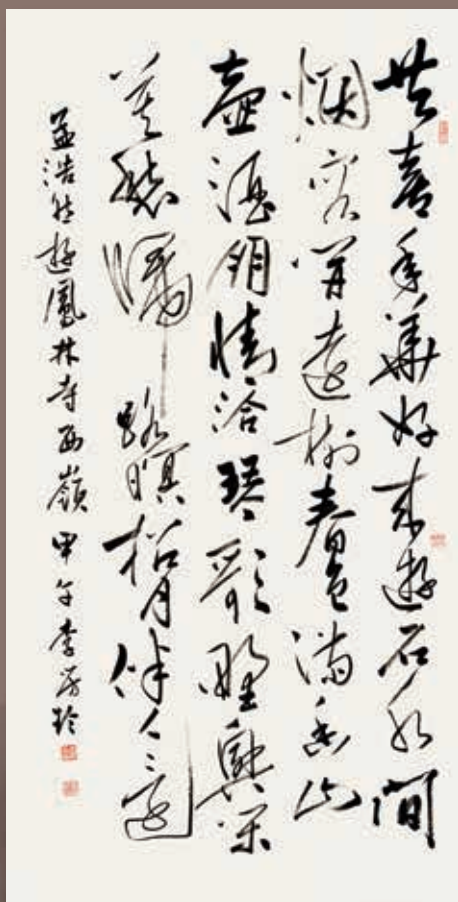 共喜年華好來遊石水間
烟容開遠樹春色滿幽山
壺酒朋情洽琴歌野興閑
莫愁歸路暝招月伴人還
孟浩然遊鳳林寺西嶺 甲午李芳玲